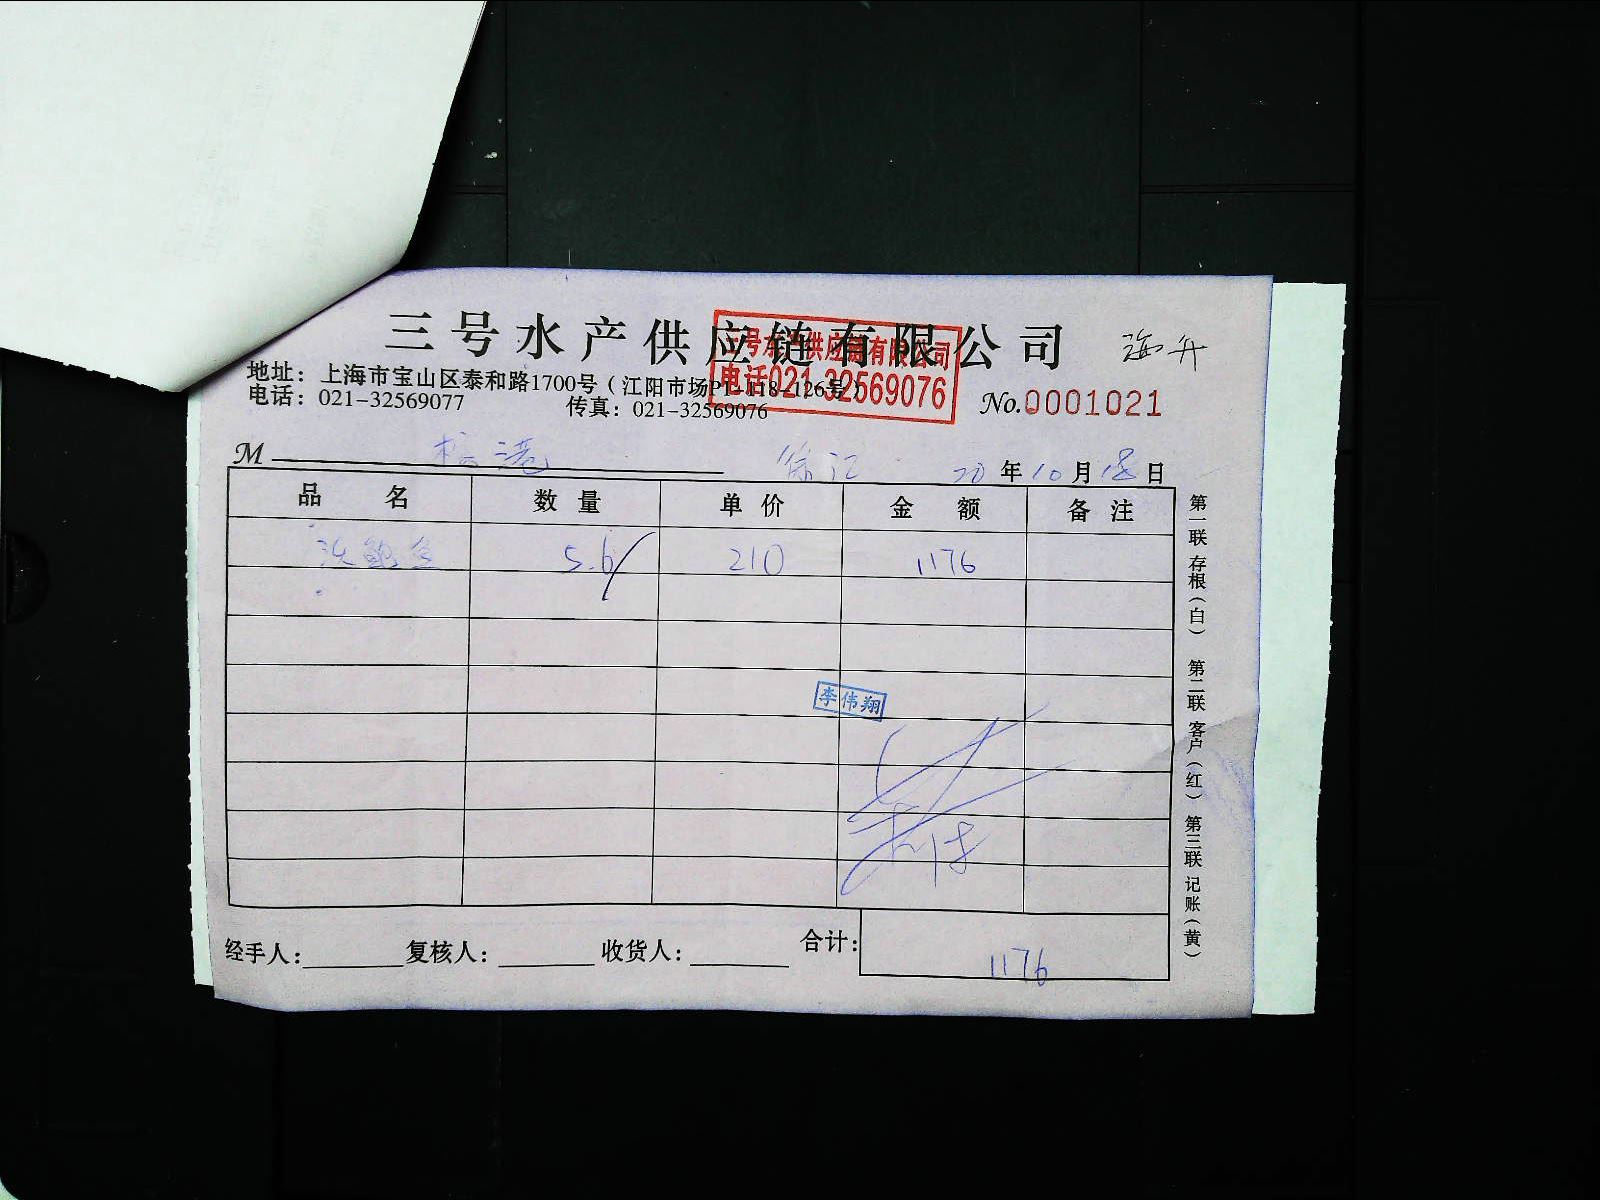 三号水产供应链有限公司
海升
三号水产供应链有限公司
电话021-32569076
地址：上海市宝山区泰和路1700号（江阳市场P1-118-126号）
电话：021-32569077 传真：021-32569076
No.0001021
M 徐汇 20年10月18日
品名 数量 单价 金额 备注
鲍鱼 5.6 210 1176
李伟翔
合计：1176
经手人： 复核人： 收货人：
第一联 存根（白） 第二联 客户（红） 第三联 记账（黄）